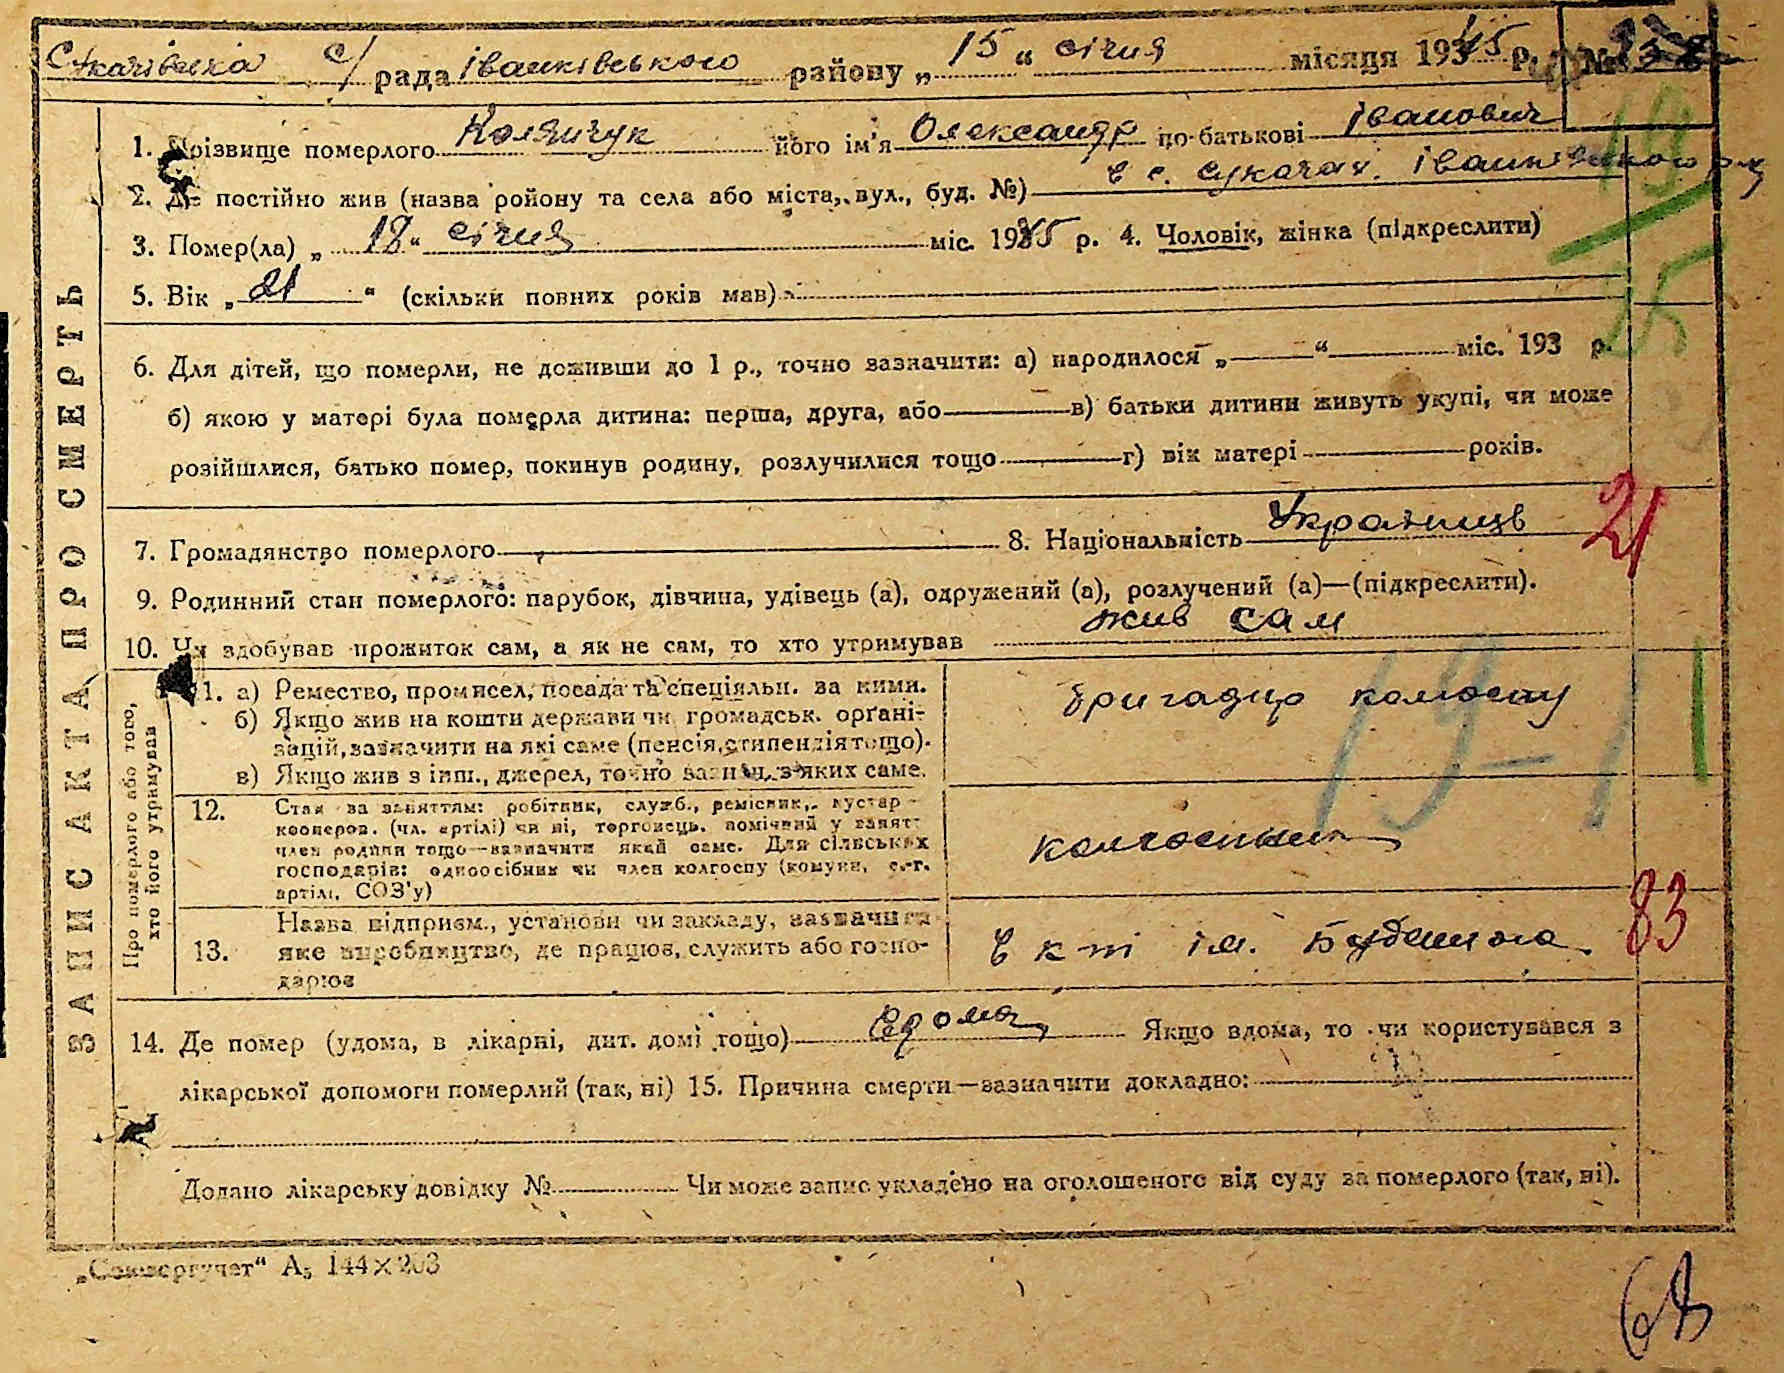 с/ рада іванківського району „15“ січня місяця 1945 р. №
ЗАПИС АКТА ПРО СМЕРТЬ
1. Прізвище померлого його ім'я Олександр по-батькові Іванович
2. Де постійно жив (назва ройону та села або міста, вул., буд. №) в с. Сукачах. Іванківського р-ну
3. Помер(ла) „18“ січня міс. 1945 р. 4. Чоловік, жінка (підкреслити)
5. Вік „21“ (скільки повних років мав)
6. Для дітей, що померли, не доживши до 1 р., точно зазначити: а) народилося „ “ міс. 193 р.
б) якою у матері була померла дитина: перша, друга, або в) батьки дитини живуть укупі, чи може
розійшлися, батько помер, покинув родину, розлучилися тощо г) вік матері років.
7. Громадянство померлого 8. Національність Українців
21
9. Родинний стан померлого: парубок, дівчина, удівець (а), одружений (а), розлучений (а)—(підкреслити).
10. Чи здобував прожиток сам, а як не сам, то хто утримував жив сам
Про померлого або того, хто його утримував
11. а) Ремество, промисел, посада та спеціяльн. за ними. бригадир колгоспу
б) Якщо жив на кошти держави чи громадськ. орґані-
зацій, зазначити на які саме (пенсія, стипендія тощо).
в) Якщо жив з інш., джерел, точно зазнач., з яких саме.
19-1
12. Стан за заняттям: робітник, служб., ремісник, кустар -
кооперов. (чл. артілі) чи ні, торговець, помічний у занят-
член родини тощо—зазначити який саме. Для сільських
господарів: одноосібник чи член колгоспу (комуни, с.-г.
артілі, СОЗ'у)
колгоспник
83
13. Назва підприєм., установи чи закладу, зазначити
яке виробництво, де працює, служить або госпо-
дарює
в к-пі ім. Будьоного
14. Де помер (удома, в лікарні, дит. домі тощо) вдома Якщо вдома, то чи користувався з
лікарської допомоги померлий (так, ні) 15. Причина смерти—зазначити докладно:
Додано лікарську довідку № Чи може запис укладено на оголошеного від суду за померлого (так, ні).
„Союзоргучет“ А₅ 144×203